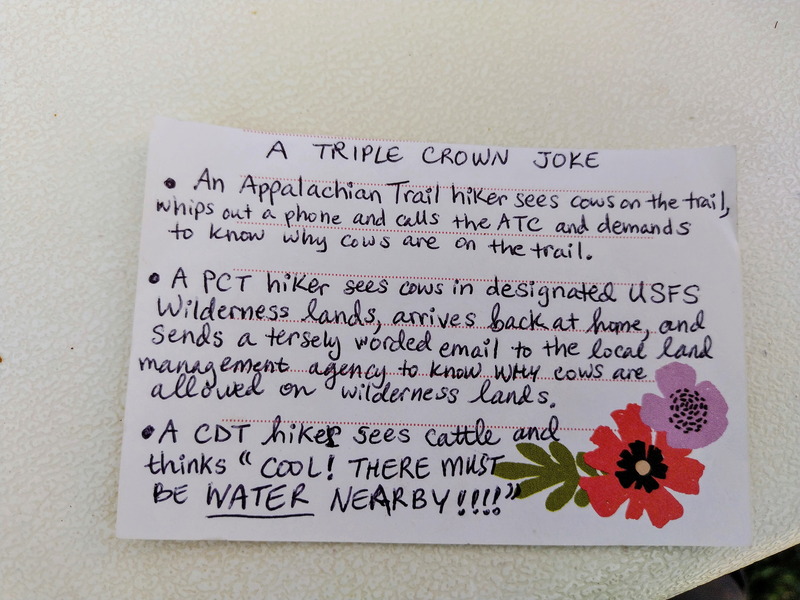 A TRIPLE CROWN JOKE
• An Appalachian Trail hiker sees cows on the trail,
whips out a phone and calls the ATC and demands
to know why cows are on the trail.
• A PCT hiker sees cows in designated USFS
Wilderness lands, arrives back at home, and
sends a tersely worded email to the local land
management agency to know WHY cows are
allowed on wilderness lands.
• A CDT hiker sees cattle and
thinks "COOL! THERE MUST
BE WATER NEARBY!!!!"